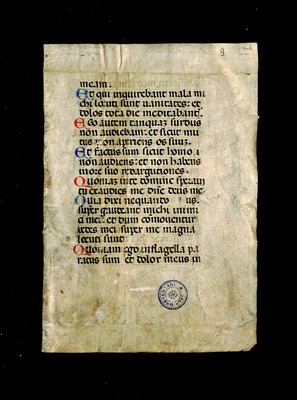 9
meam.
Et qui inquirebant mala mi
chi locuti sunt uanitates: et
dolos tota die meditabant
Ego autem tanquaz surdus
non audiebam: et sicut mu
tus non aperiens os suuz.
Et factus sum sicut homo
non audiens: et non habens
in ore suo redargutiones.
Quoniaz in te domine speraui
tu exaudies me dne deus me
Quia dixi nequando us.
super gaudeant michi inimi
ci mei: et dum comouentur
pedes mei super me magna
locuti sunt
Quoniam ego in flagella pa
ratus sum et dolor meus in